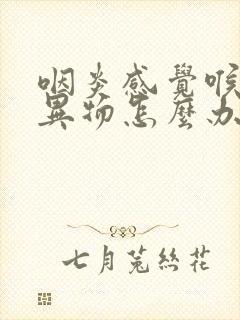 咽炎感覺喉
異物怎麼办
七月菟絲花